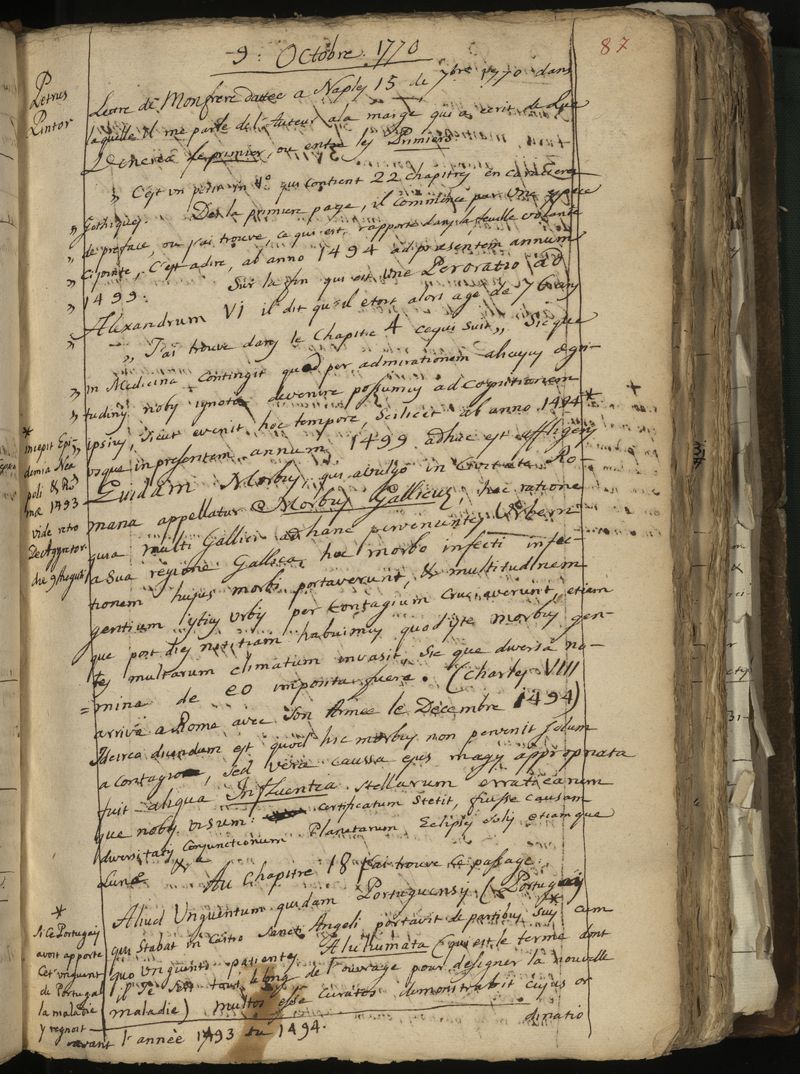 87
9: Octobre 1770
Petrus
Pintor
Lettre de Monfrere dattée a Naples 15 de 7bre 1770 dans
laquelle il me parle de l'Auteur a la marge qui a ecrit de Lue
Venerea le premier, ou entre les Primiers.
" C'est un petit in 4º qui contient 22 chapitres en caracteres
" Gothiques. Des la premiere page, il commence par une espece
" de preface, ou j'ai trouvé, ce qui est rapporté dans la feuille volante
" Cijointe, C'est a dire, ab anno 1494 ad præsentem annum
" 1499: Sur la fin qui est une Peroratio ad
" Alexandrum VI il dit qu'il etoit alors agé de 76 ans
" J'ai trouvé dans le Chapitre 4 cequi suit " Sic que
" in Medicina contingit quod per admirationem alicujus ægri-
" tudinis nobis ignotæ devenire possumus ad cognitionem
" ipsius, sicut evenit hoc tempore, scilicet ab anno 1494 *
usque in presentem annum 1499 adhuc est affligens
Quidam Morbus, qui a vulgo in Civitate Ro-
mana appellatur Morbus Gallicus, hac ratione
quia multi Gallici ad hanc pervenientes Urbem
a sua regione Gallica, hoc morbo infecti infec-
tionem hujus morbi portaverunt, & multitudinem
gentium istius Urbis per Contagium cruciaverunt, etiam
que post dies notitiam habuimus quod iste morbus gen-
tes multarum climatum invasit Sic que diversa no-
= mina de eo imposita fuere. (Charles VIII
arrivé a Rome avec son Armée le Decembre 1494)
Idcirco dicendum est quod hic morbus non pervenit solum
a contagione, sed vera caussa ejus magis appropriata
fuit aliqua Influentia stellarum erraticarum
que nobis visum certificatum stetit, fuisse causam
diversitatis Conjunctionum Planetarum Eclipsis solis etiamque
Lunæ &a Au Chapitre 18 j'ai trouvé ce passage:
Aliud Unguentum quidam Portuguensis (Portugais
qui stabat in Castro Sancti Angeli portavit de partibus suis * cum
quo unguento patientes Alutumata (qui est le terme dont
il se sert tout le long de l'ouvrage pour designer la nouvelle
maladie) multos esse curatos demonstrabit cujus or
dinatio
* incepit Epi-
demia Nea
poli & Ro
mæ 1493
vide retro
De Aggrator
du 9 August
*
Si Ce Portugais
avoit apporté
Cet unguent
de Portugal
la maladie
y regnoit
avant l'année 1493 ou 1494.